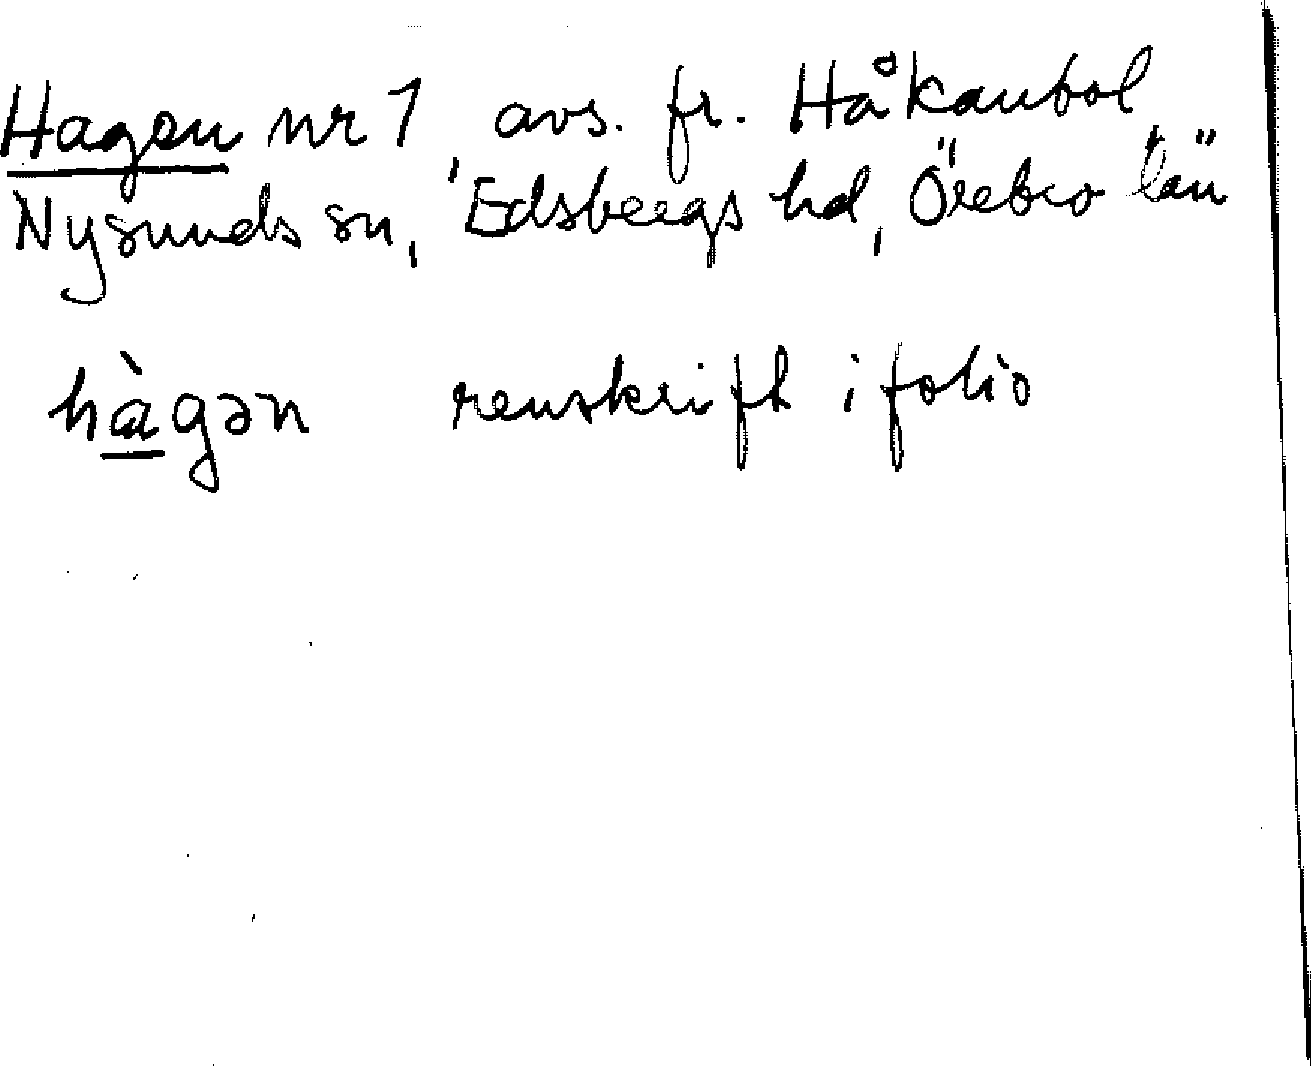 Hagen nr 1, avs. fr. Håkanbol,
Nysunds sn, Edsbergs hd, Örebro län
hàgən renskrift i folio